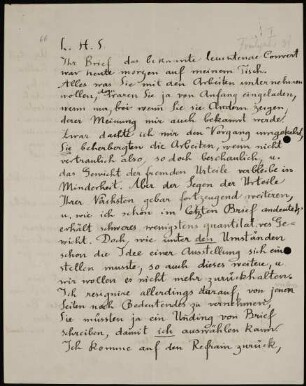 L. H. S.
Ihr Brief das bekannte leuchtende Couvert
war heute morgen auf meinem Tisch.
Alles was Sie mit den Arbeiten unternehmen
wollen, dazu waren Sie ja von Anfang eingeladen,
wenn nur, bei wenn Sie sie Andern zeigen
deren Meinung mir auch bekannt werde.
Zwar dachte ich mir den Vorgang umgekehrt,
Sie beherbergten die Arbeiten, wenn nicht
vertraulich also, so doch beschaulich, u.
das Gewicht der fremden Urteile verbliebe in
Minderheit. Aber der Segen der Urteile
Ihrer Nächsten gebar fortzeugend weiteren,
u. wie ich schon im letzten Brief andeutete
erhält schweres wenigstens quantitatives Ge-
wicht. Doch, wie unter den Umständen
schon die Idee einer Ausstellung sich ein
stellen musste, so auch dieses weitere, u.
wir wollen es nicht mehr zurückhalten.
Ich resigniere allerdings darauf, von jenen
Seiten noch Bedeutendes zu vernehmen,
Sie müssten ja ein Unding von Brief
schreiben, damit ich auswählen kann.
Ich komme auf den Refrain zurück,